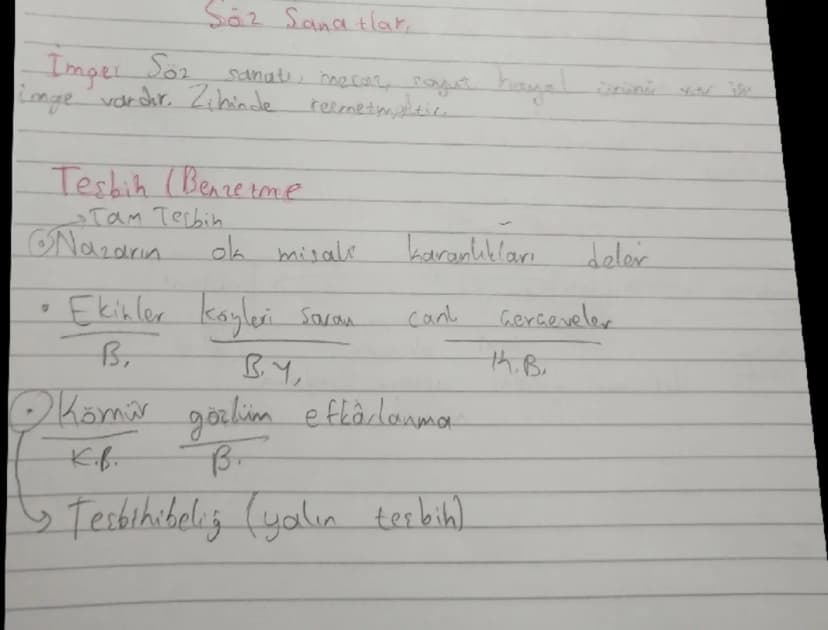 Söz Sanatları
İmge: Söz sanatı, mecaz, soyut hayal ürünü var ise
imge vardır. Zihinde resmetmektir.
Teşbih (Benzetme
→Tam Teşbih
Nazarın ok misali karanlıkları deler
• Ekinler köyleri saran canlı çerçeveler
B. B.Y. K.B.
• Kömür gözlüm efkârlanma
K.B. B.
→ Teşbihibeliğ (yalın teşbih)